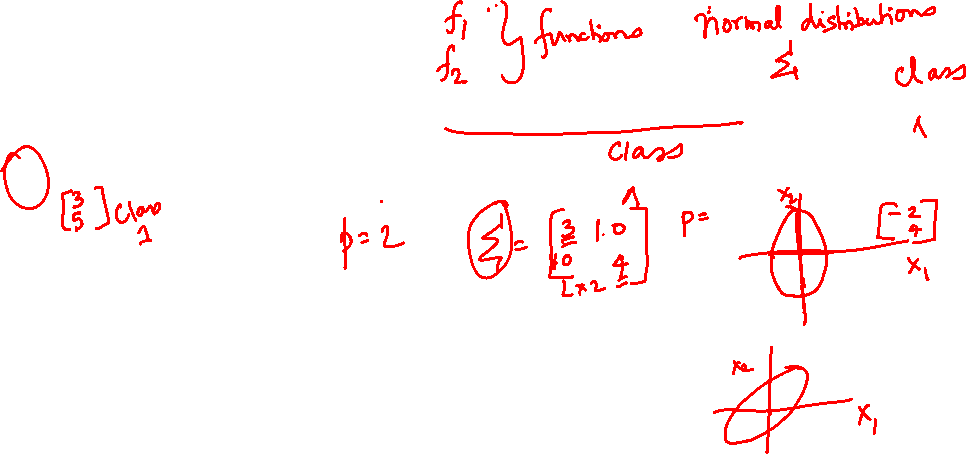 f1 } functions normal distributions
f2 Σ1 class
class 1
[3
5] class
1
p = 2 Σ = [3 1.0
10 4]
2x2
p =
x2
x1
[-2
4]
x2
x1